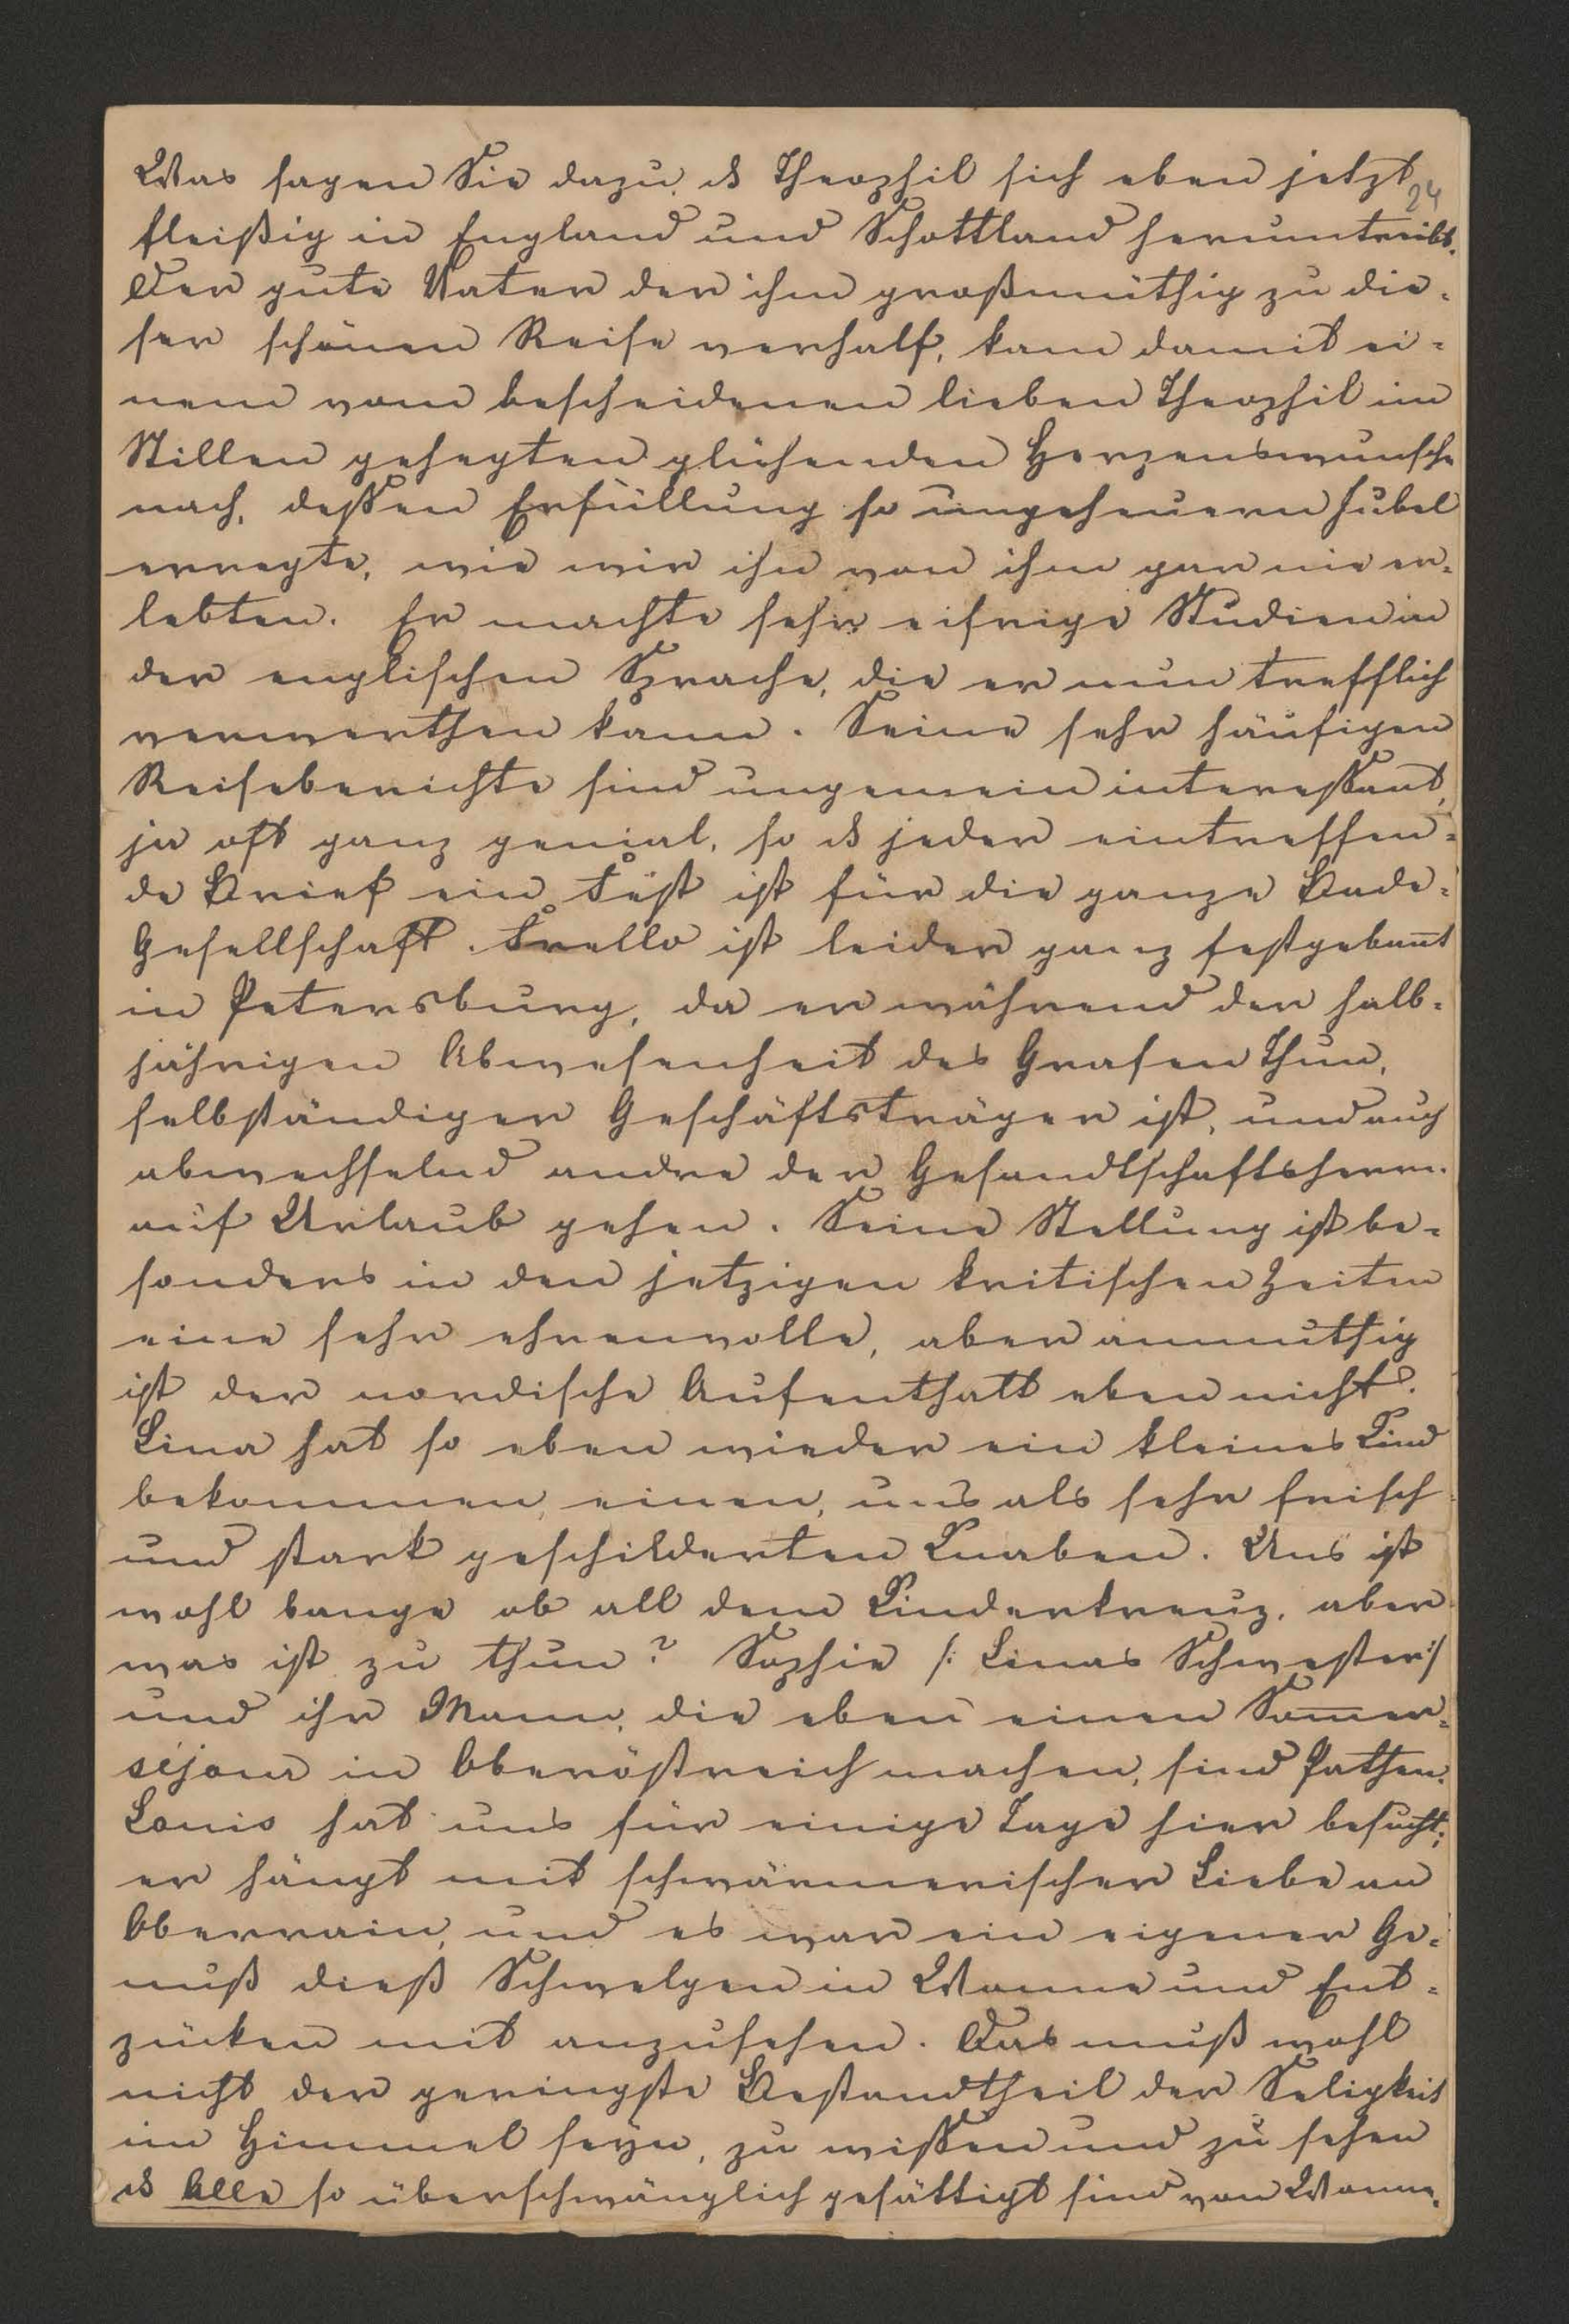 Was sagen Sie dazu, dß Theophil sich eben jetzt
24
fleißig in England und Schottland herumtreibt.
Der gute Vater der ihm großmüthig zu die-
ser schönen Reise verhalf, kam damit ei-
nem vom bescheidenen lieben Theophil im
Stillen gehegten glühenden Herzenswunsche
nach, deßen Erfüllung so ungeheuern Jubel
erregte, wie wir ihn von ihm gar nie er-
lebten. Er machte sehr eifrige Studien in
der englischen Sprache, die er nun trefflich
verwerthen kann. Seine sehr häufigen
Reiseberichte sind ungemein intereßant,
ja oft ganz genial, so dß jeder eintreffen-
de Brief ein Fest ist für die ganze Bade-
Gesellschaft. Frello ist leider ganz festgebannt
in Petersburg, da er während der halb-
jährigen Abwesenheit des Grafen Thun,
selbständiger Geschäftsträger ist, und auch
abwechselnd andre der Gesandtschaftsherrn
auf Urlaub gehen. Seine Stellung ist be-
sonders in den jetzigen kritischen Zeiten
eine sehr ehrenvolle, aber anmuthig
ist der nordische Aufenthalt eben nicht.
Lina hat so eben wieder ein kleines Kind
bekommen, einen, uns als sehr frisch
und stark geschilderten Knaben. Uns ist
wohl bange ob all dem Kinderkreuz, aber
was ist zu thun? Sophie /: Linas Schwester :/
und ihr Mann, die eben einen Som̅er-
séjour in Oberöstreich machen, sind Pathen.
Louis hat uns für einige Tage hier besucht;
er hängt mit schwärmerischer Liebe an
Oberrain, und es war ein eigener Ge-
nuß dieß Schwelgen in Wonne und Ent-
zücken mit anzusehen. Das muß wohl
nicht der geringste Bestandtheil der Seligkeit
im Himmel seyn, zu wißen und zu sehen
dß Alle so überschwänglich gesättigt sind von Wonne.